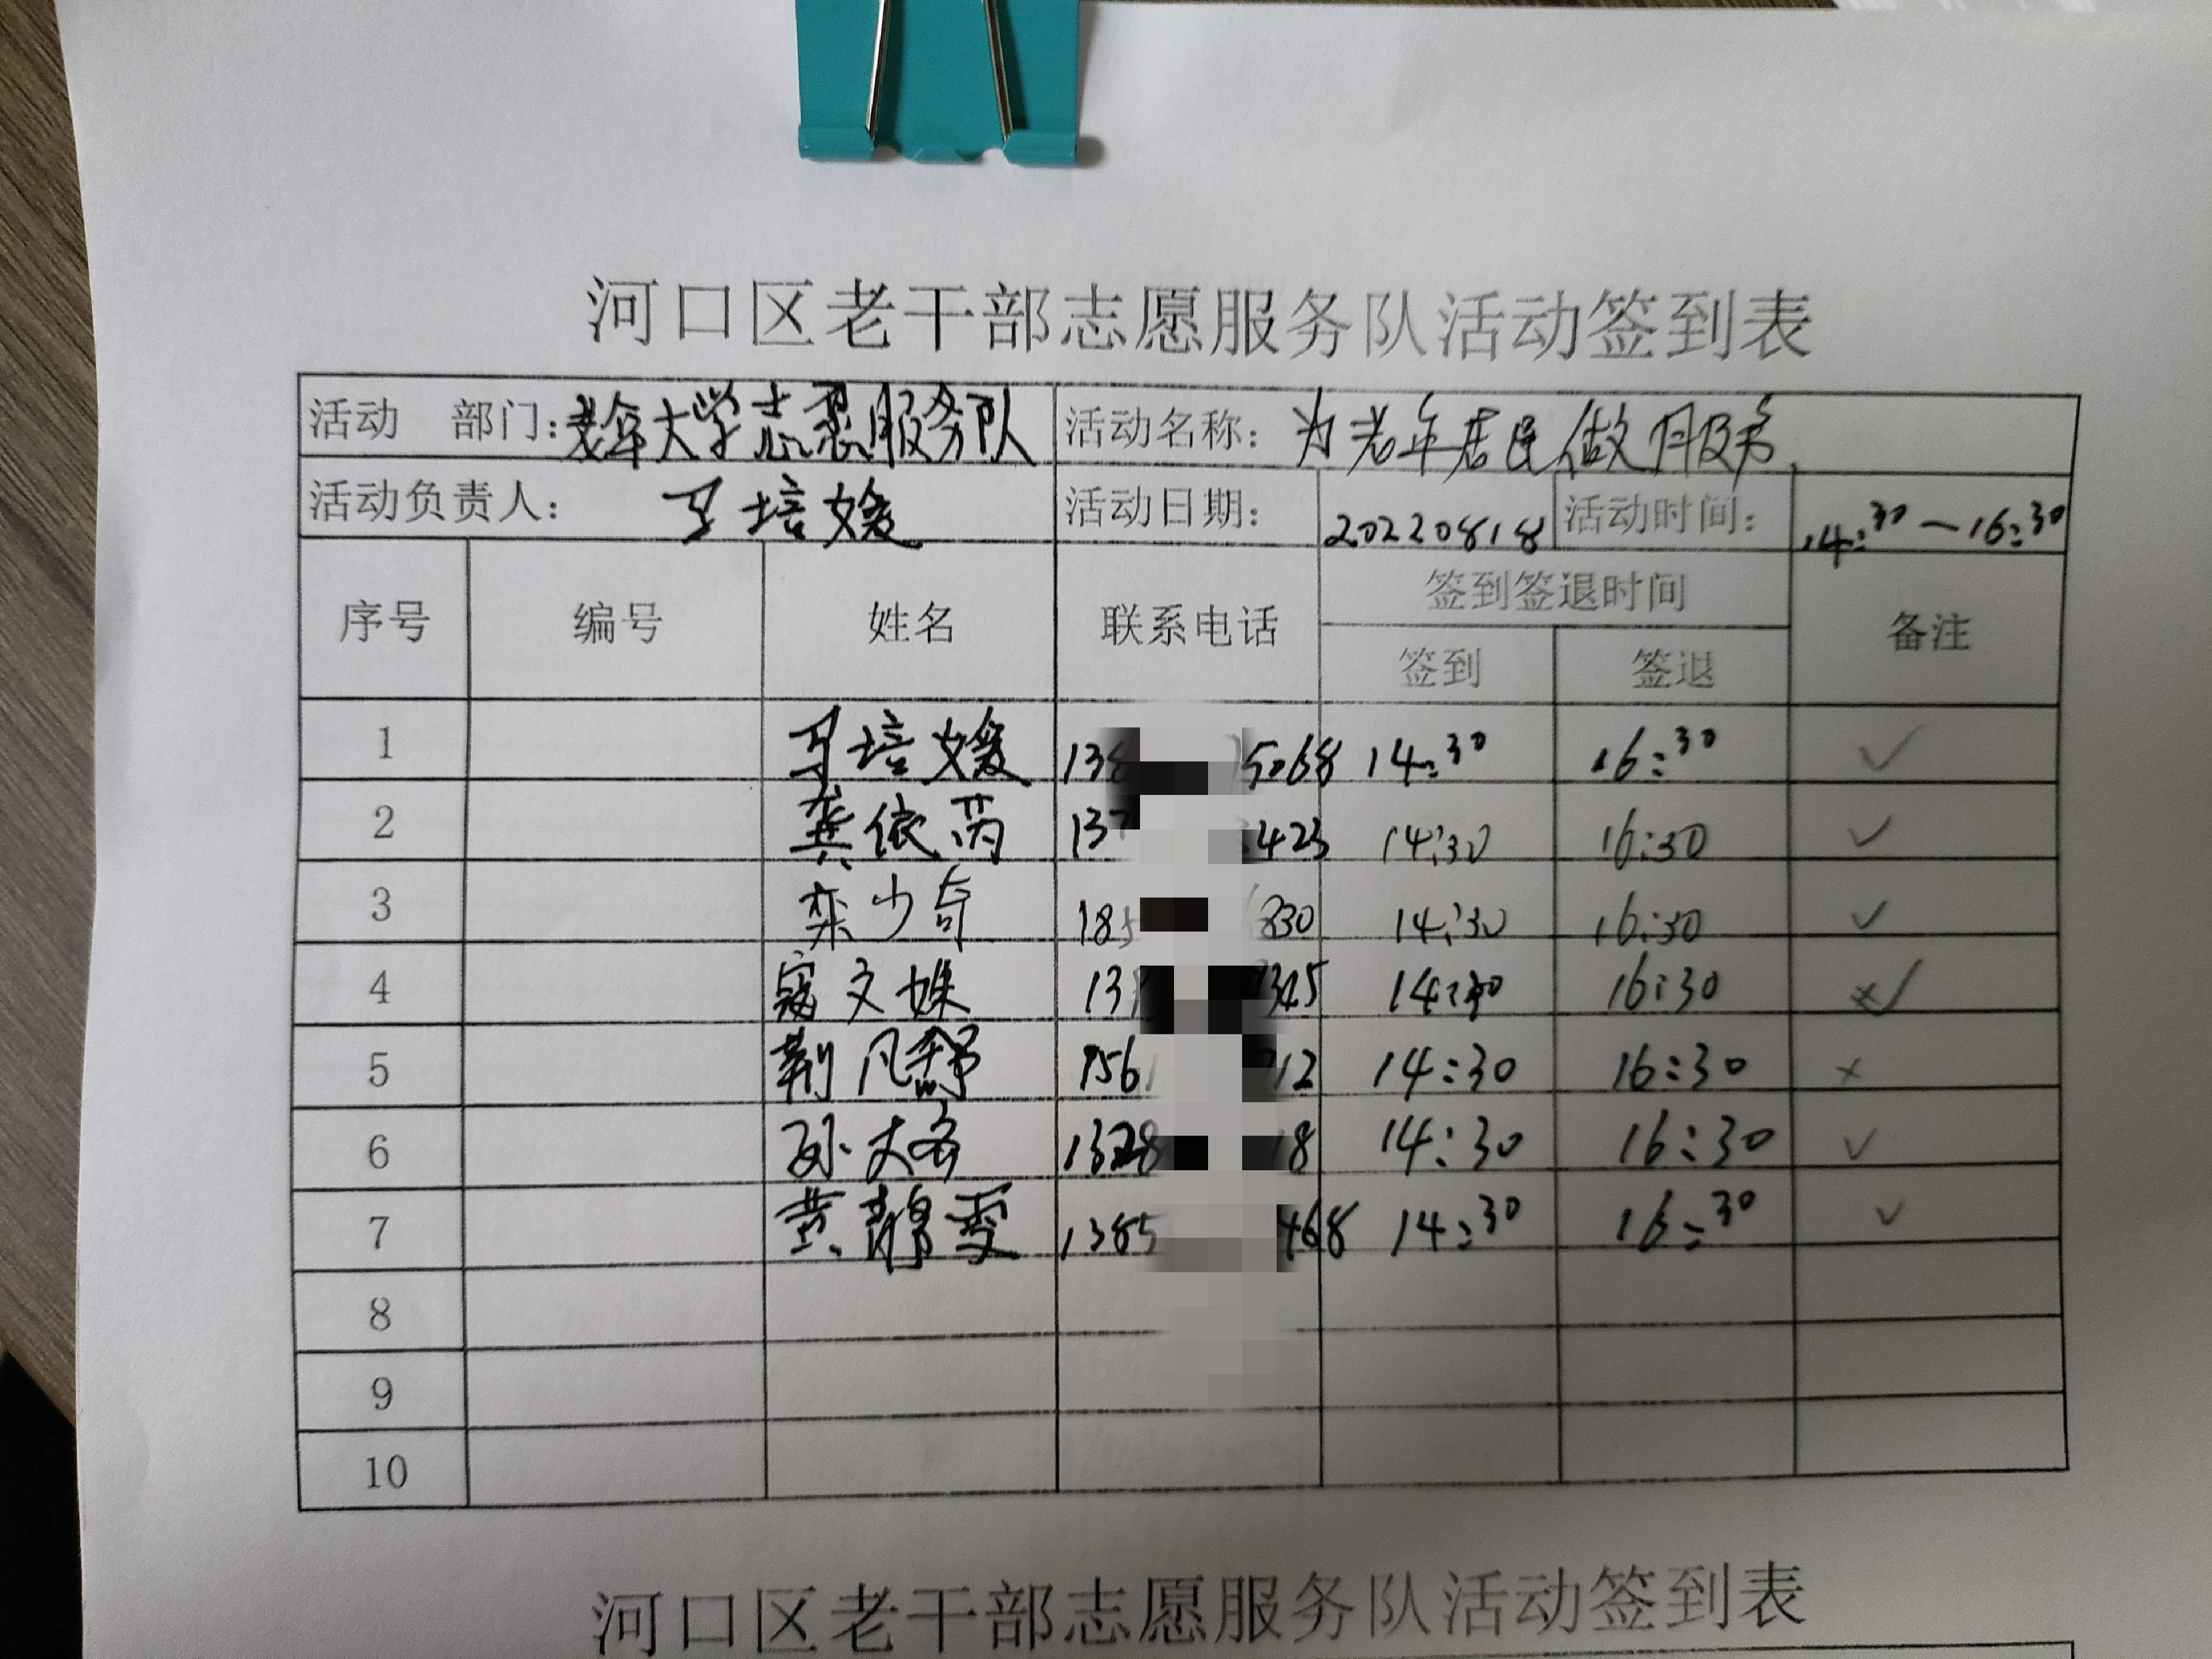 河口区老干部志愿服务队活动签到表
活动 部门: 老年大学志愿服务队 活动名称: 为老年居民做服务
活动负责人: 王培媛 活动日期: 20220818 活动时间: 14:30—16:30
序号 编号 姓名 联系电话 签到签退时间 备注
签到 签退
1 王培媛 138 5068 14:30 16:30 ✓
2 龚依芮 137 423 14:30 16:30 ✓
3 栾少奇 185 830 14:30 16:30 ✓
4 寇文姝 13 345 14:30 16:30 ×✓
5 荆凡 1561 12 14:30 16:30 ×
6 孙 1328 18 14:30 16:30 ✓
7 黄静雯 1385 468 14:30 16:30 ✓
8
9
10
河口区老干部志愿服务队活动签到表